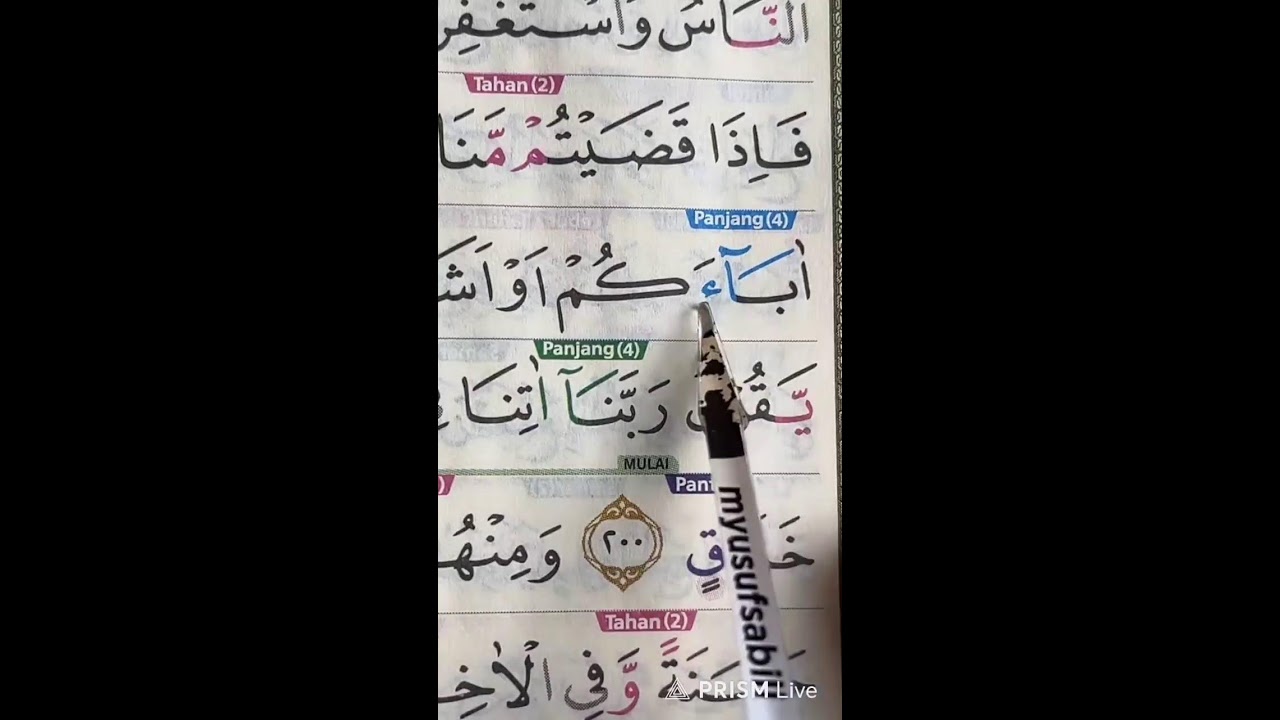 النَّاسُ وَاسْتَغْفِرُ
Tahan (2)
فَاِذَا قَضَيْتُمْ مَّنَا
Panjang (4)
اٰبَاۤءَكُمْ اَوْ اَشَ
Panjang (4)
رَبَّنَآ اٰتِنَا
MULAI
٢٠٠ وَمِنْهُ
Tahan (2)
وَّفِى الْاٰخِ
myusufsabil
PRISM Live